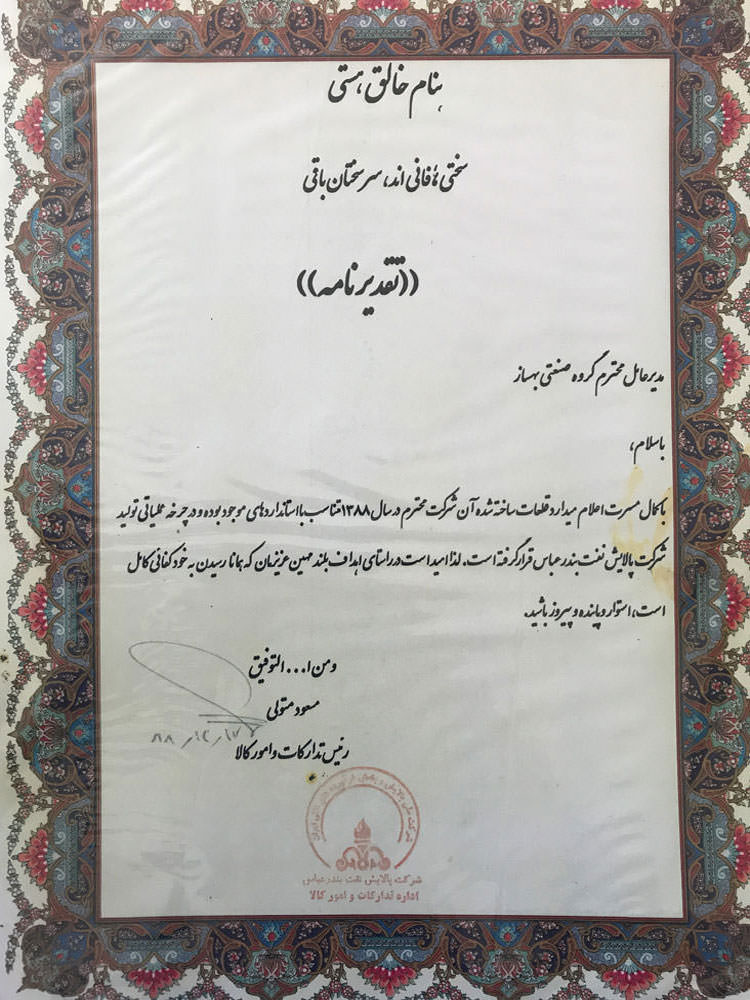 بنام خالق هستی
سختی ها فانی اند، سرسختان باقی
((تقدیرنامه))
مدیرعامل محترم گروه صنعتی بهساز
باسلام،
با کمال مسرت اعلام میدارد قطعات ساخته شده آن شرکت محترم در سال ۱۳۸۸ متناسب با استانداردهای موجود بوده و در چرخه عملیاتی تولید
شرکت پالایش نفت بندرعباس قرار گرفته است، لذا امید است در راستای اهداف بلند میهن عزیزمان که همانا رسیدن به خودکفائی کامل
است، استوار و پاینده و پیروز باشید.
و من ا... التوفیق
مسعود متولی
رئیس تدارکات و امور کالا
شرکت ملی پالایش و پخش فرآورده های نفتی ایران
شرکت پالایش نفت بندرعباس
اداره تدارکات و امور کالا